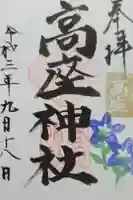 奉拝
高座神社
令和三年九月十八日